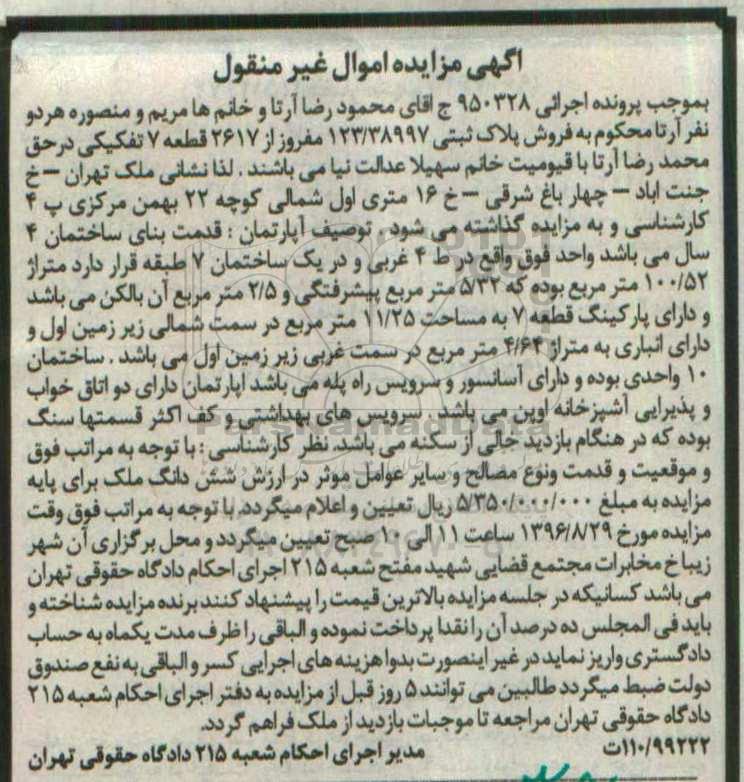 اگهی مزایده اموال غیر منقول
بموجب پرونده اجرائی ۹۵۰۳۲۸ ج اقای محمود رضا آرتا و خانم ها مریم و منصوره هردو
نفر آرتا محکوم به فروش پلاک ثبتی ۱۲۳/۳۸۹۹۷ مفروز از ۲۶۱۷ قطعه ۷ تفکیکی درحق
محمد رضا آرتا با قیومیت خانم سهیلا عدالت نیا می باشند . لذا نشانی ملک تهران – خ
جنت اباد – چهار باغ شرقی – خ ۱۶ متری اول شمالی کوچه ۲۲ بهمن مرکزی پ ۴
کارشناسی و به مزایده گذاشته می شود . توصیف آپارتمان : قدمت بنای ساختمان ۴
سال می باشد واحد فوق واقع در ط ۴ غربی و در یک ساختمان ۷ طبقه قرار دارد متراژ
۱۰۰/۵۲ متر مربع بوده که ۵/۳۲ متر مربع پیشرفتگی و ۲/۵ متر مربع آن بالکن می باشد
و دارای پارکینگ قطعه ۷ به مساحت ۱۱/۲۵ متر مربع در سمت شمالی زیر زمین اول و
دارای انباری به متراژ ۴/۶۴ متر مربع در سمت غربی زیر زمین اول می باشد . ساختمان
۱۰ واحدی بوده و دارای آسانسور و سرویس راه پله می باشد اپارتمان دارای دو اتاق خواب
و پذیرایی آشپزخانه اوپن می باشد . سرویس های بهداشتی و کف اکثر قسمتها سنگ
بوده که در هنگام بازدید خالی از سکنه می باشد. نظر کارشناسی : با توجه به مراتب فوق
و موقعیت و قدمت ونوع مصالح و سایر عوامل موثر در ارزش شش دانگ ملک برای پایه
مزایده به مبلغ ۵/۳۵۰/۰۰۰/۰۰۰ ریال تعیین و اعلام میگردد. با توجه به مراتب فوق وقت
مزایده مورخ ۱۳۹۶/۸/۲۹ ساعت ۱۱ الی ۱۰ صبح تعیین میگردد و محل برگزاری آن شهر
زیبا خ مخابرات مجتمع قضایی شهید مفتح شعبه ۲۱۵ اجرای احکام دادگاه حقوقی تهران
می باشد کسانیکه در جلسه مزایده بالاترین قیمت را پیشنهاد کنند برنده مزایده شناخته و
باید فی المجلس ده درصد آن را نقدا پرداخت نموده و الباقی را ظرف مدت یکماه به حساب
دادگستری واریز نماید در غیر اینصورت بدوا هزینه های اجرایی کسر و الباقی به نفع صندوق
دولت ضبط میگردد طالبین می توانند ۵ روز قبل از مزایده به دفتر اجرای احکام شعبه ۲۱۵
دادگاه حقوقی تهران مراجعه تا موجبات بازدید از ملک فراهم گردد.
۱۱۰/۹۹۲۲۲ت مدیر اجرای احکام شعبه ۲۱۵ دادگاه حقوقی تهران
ParsNamadData